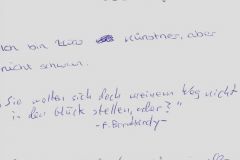 Ich bin kein Künstner, aber
nicht schwur.
„Sie wollen sich doch meinem Weg nicht
in den Glück stellen, oder?"